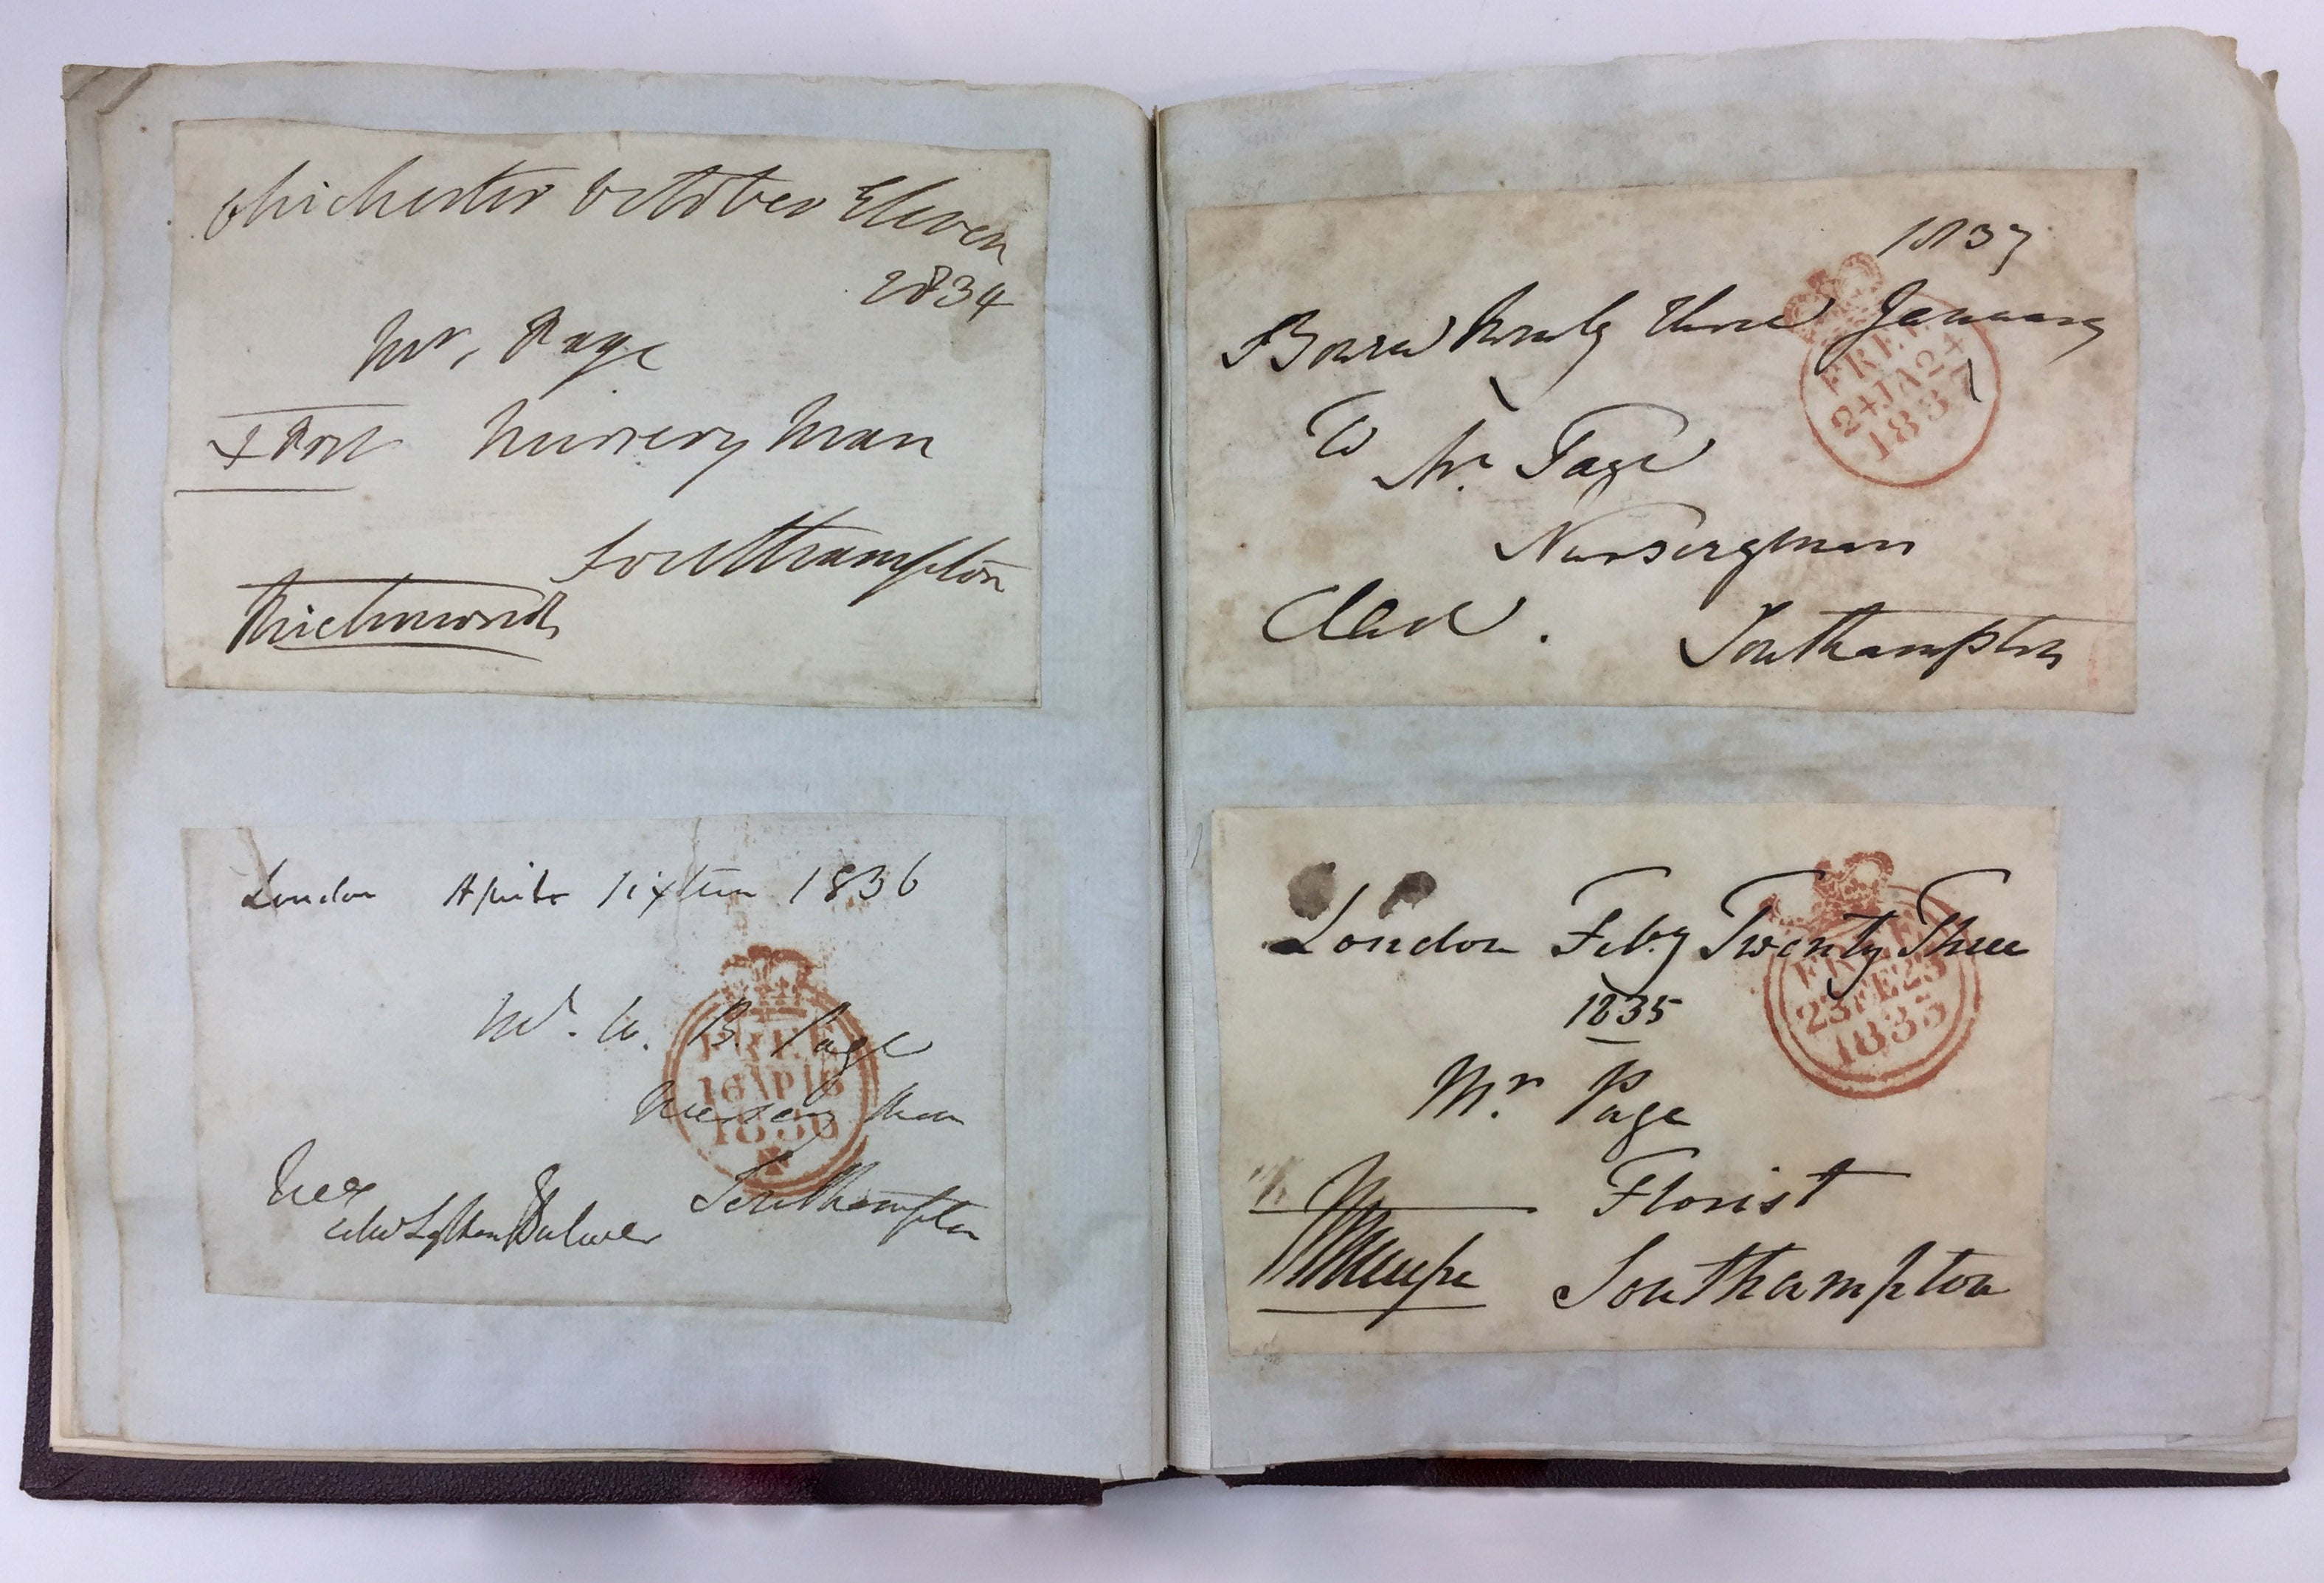 Chichester October Eleven
1834
Mr, Page
Post Nursery Man
Southampton
Richmond
London April sixteen 1836
Mr. W. B. Page
Nursery Man
FREE
16 AP 16
1836
Southampton
Edw Lytton Bulwer
1837
Twenty Three January
FREE
24 JA 24
1837
To
Mr. Page
Nurseryman
Southampton
London Feby Twenty Three
1835
FREE
23 FE 23
1835
Mr. Page
Florist
Southampton